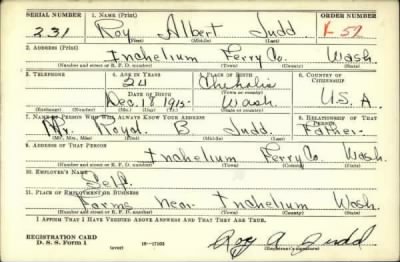 SERIAL NUMBER 1. NAME (Print) ORDER NUMBER
231 Roy Albert Judd
(First) (Middle) (Last)
2. ADDRESS (Print)
Inchelium Ferry Co. Wash.
(Number and street or R. F. D. number) (Town) (County) (State)
3. TELEPHONE 4. AGE IN YEARS 5. PLACE OF BIRTH 6. COUNTRY OF CITIZENSHIP
24 Chehalis
DATE OF BIRTH (Town or county)
Dec. 18 1915 Wash U.S.A.
(Exchange) (Number) (Mo.) (Day) (Yr.) (State or country)
7. NAME OF PERSON WHO WILL ALWAYS KNOW YOUR ADDRESS 8. RELATIONSHIP OF THAT PERSON
Mr. Royal B Judd. Father
(Mr., Mrs., Miss) (First) (Middle) (Last)
9. ADDRESS OF THAT PERSON
Inchelium Ferry Co. Wash.
(Number and street or R. F. D. number) (Town) (County) (State)
10. EMPLOYER'S NAME
Self.
11. PLACE OF EMPLOYMENT OR BUSINESS
Farms near Inchelium Wash.
(Number and street or R. F. D. number) (Town) (County) (State)
I AFFIRM THAT I HAVE VERIFIED ABOVE ANSWERS AND THAT THEY ARE TRUE.
REGISTRATION CARD
D. S. S. Form 1 (over) Roy A Judd
(Registrant's signature)